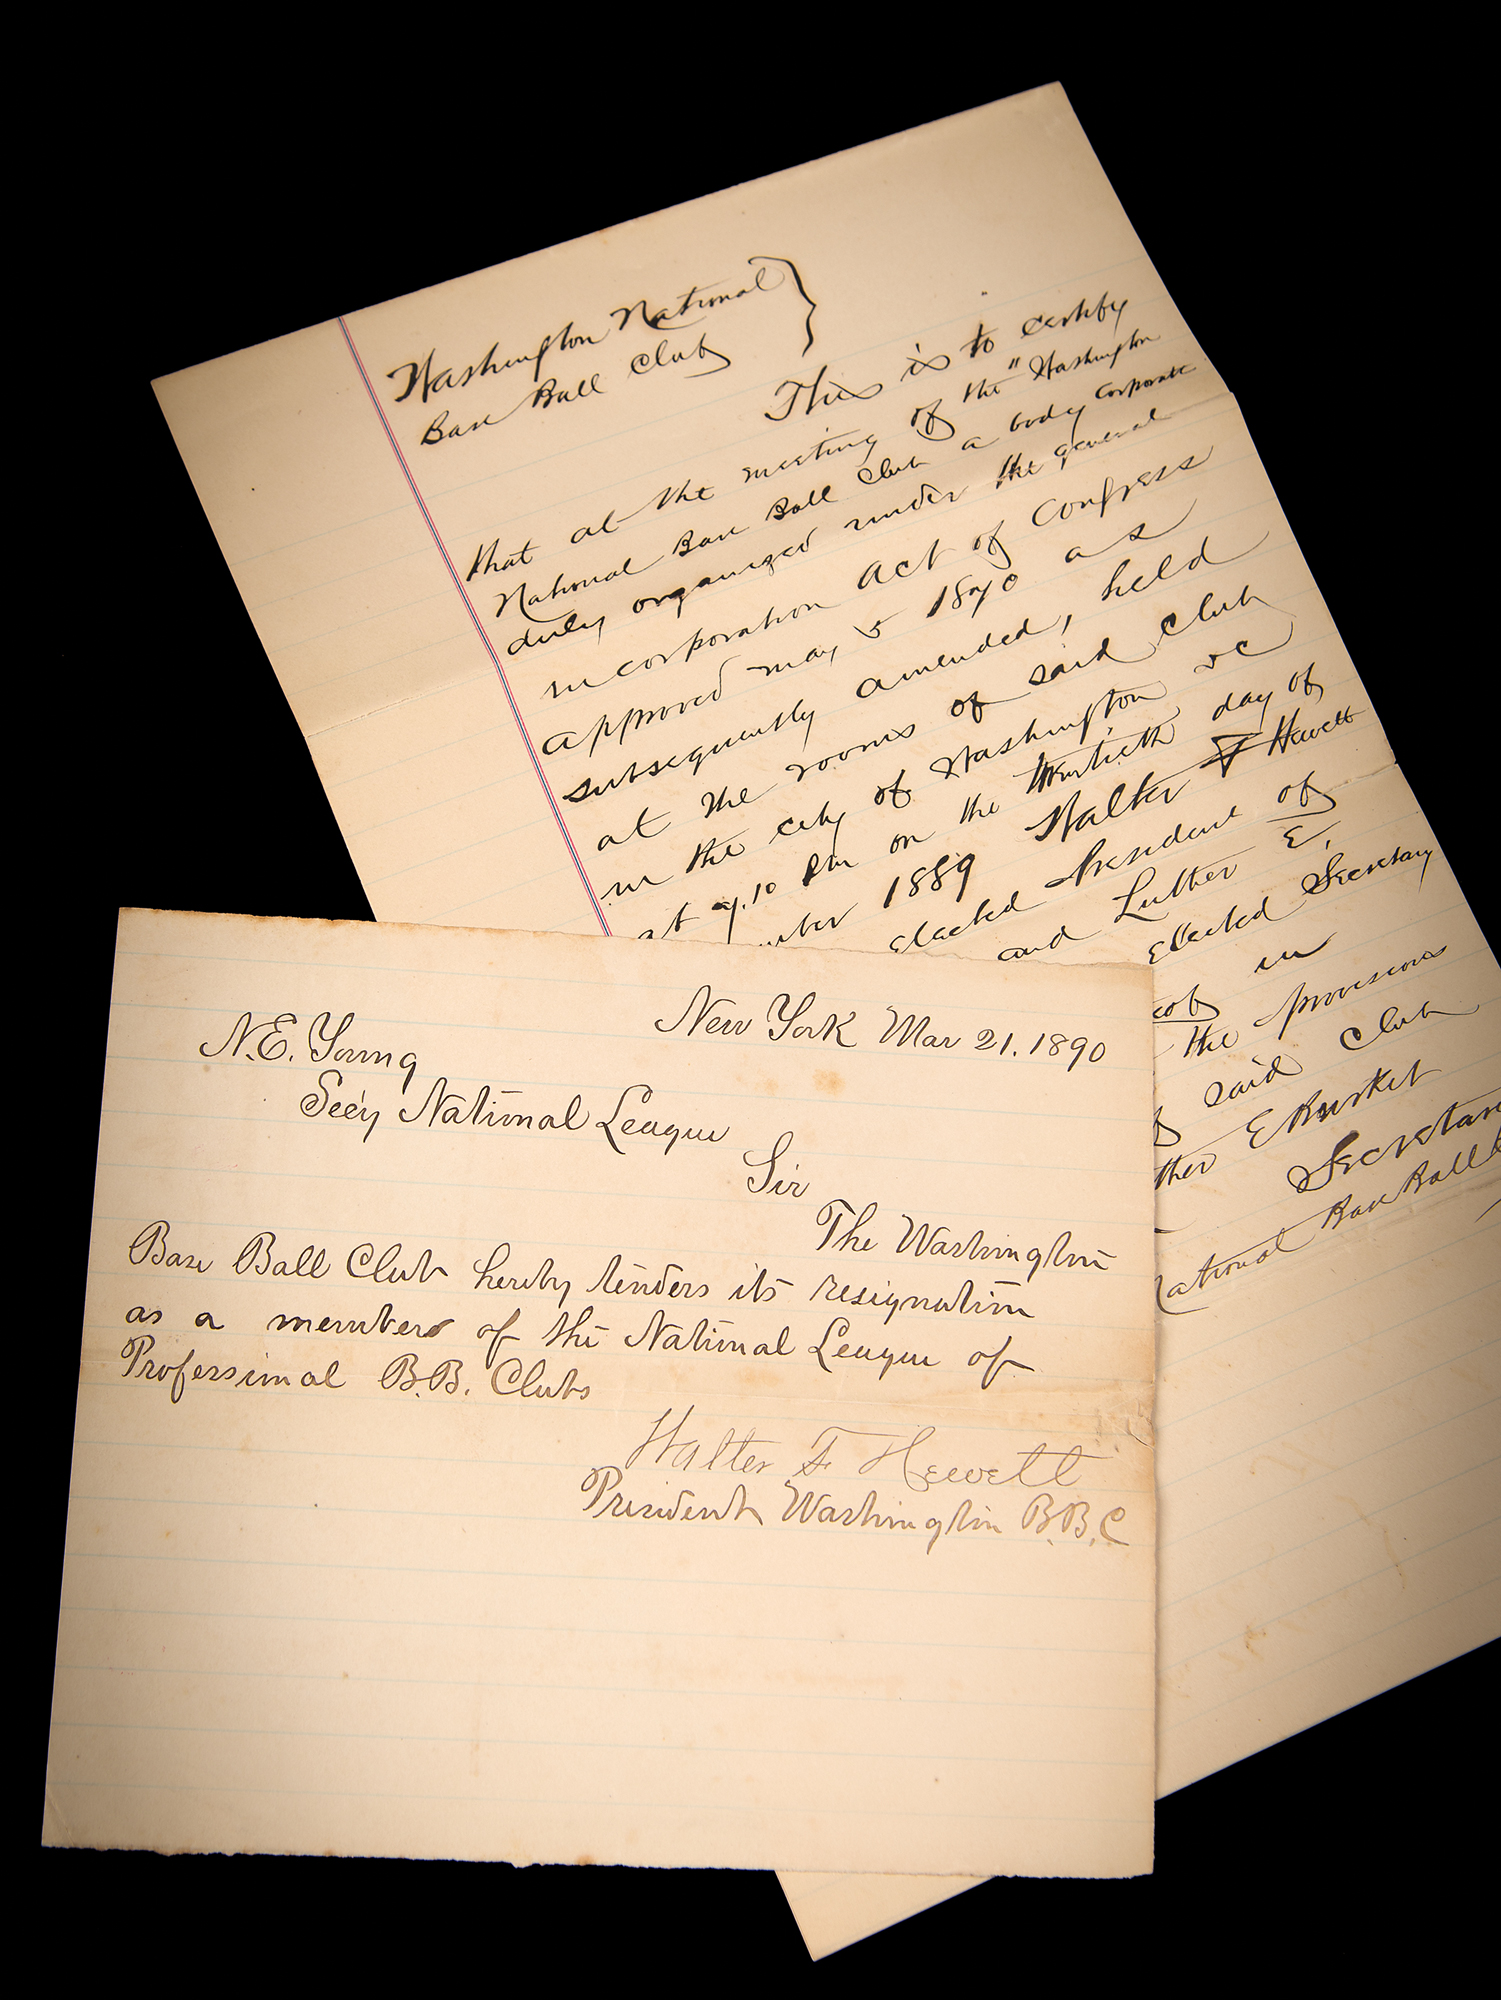 Washington National
Base Ball Club
This is to certify
that at the meeting of the "Washington
National Base Ball Club a body corporate
duly organized under the general
incorporation act of Congress
approved may 5 1870 as
subsequently amended, held
at the rooms of said Club
in the city of Washington DC
at 7.10 Pm on the twentieth day of
1889 Walter F Hewett
elected President of
and Luther E.
elected Secretary
in
the provisions
said Club
E Burket
Secretary
National Base Ball
New York Mar 21. 1890
N.E. Young
Sec'y National League
Sir
The Washington
Base Ball Club hereby tenders its resignation
as a member of the National League of
Professional B.B. Clubs
Walter F. Hewett
President Washington B.B.C